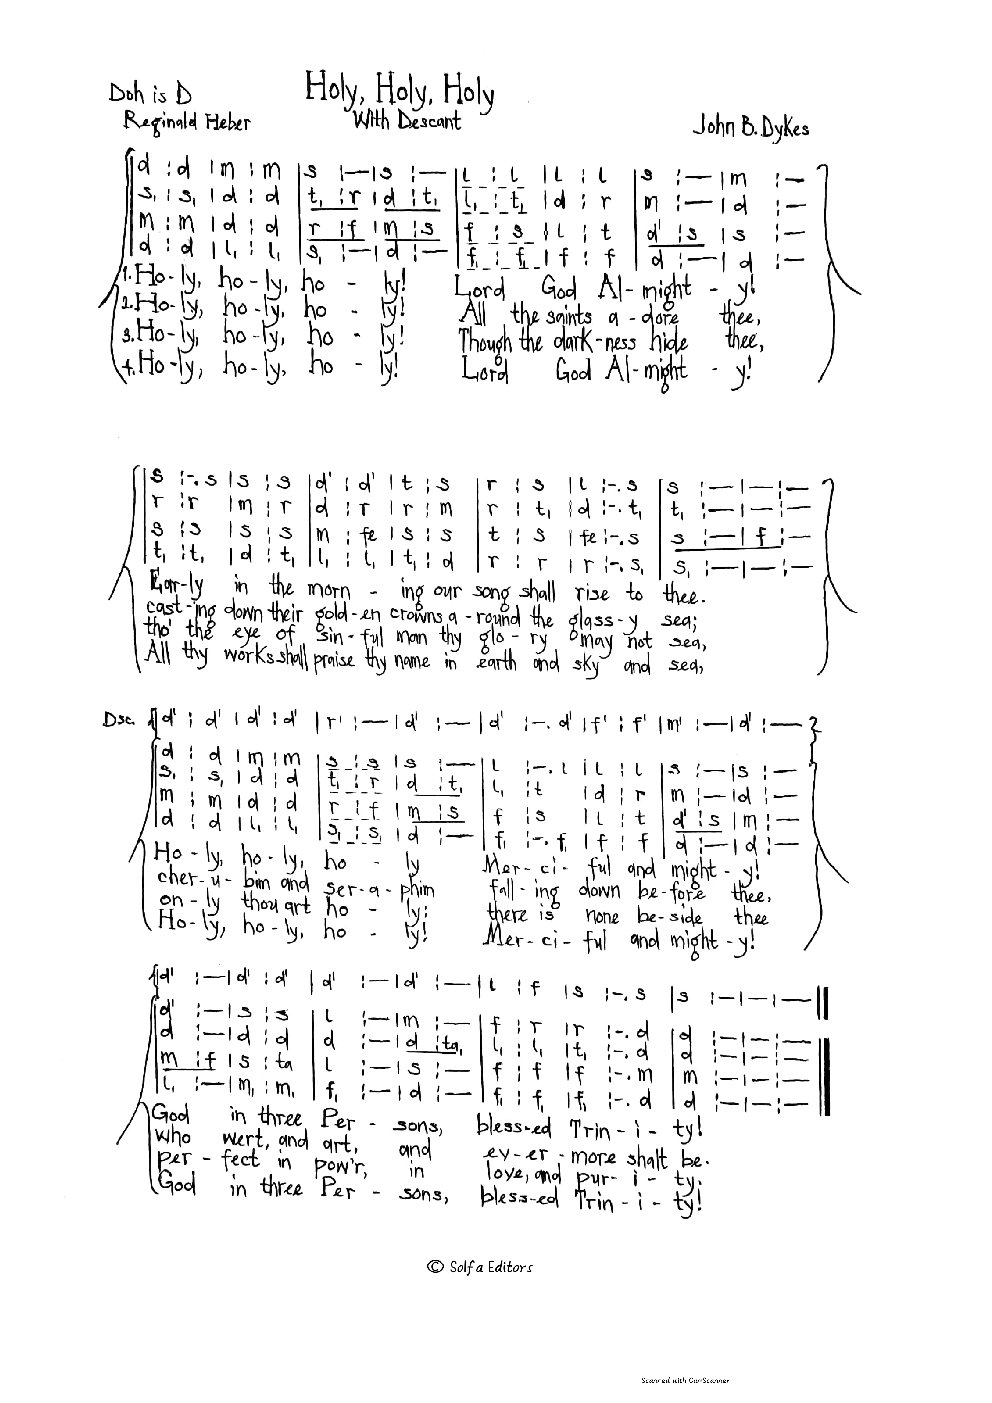 Holy, Holy, Holy
Doh is D
With Descant
Reginald Heber
John B. Dykes
d : d | m : m | s : — | s : — | l : l | l : l | s : — | m : —
s, : s, | d : d | t, : r | d : t, | l, : t, | d : r | m : — | d : —
m : m | d : d | r : f | m : s | f : s | l : t | d' : s | s : —
d : d | l, : l, | s, : — | d : — | f, : f, | f : f | d : — | d : —
1. Ho-ly, ho-ly, ho - ly! Lord God Al-might - y!
2. Ho-ly, ho-ly, ho - ly! All the saints a-dore thee,
3. Ho-ly, ho-ly, ho - ly! Though the dark-ness hide thee,
4. Ho-ly, ho-ly, ho - ly! Lord God Al-might - y!
s : -. s | s : s | d' : d' | t : s | r : s | l : -. s | s : — | — : —
r : r | m : r | d : r | r : m | r : t, | d : -. t, | t, : — | — : —
s : s | s : s | m : fe | s : s | t : s | fe : -. s | s : — | f : —
t, : t, | d : t, | l, : l, | t, : d | r : r | r : -. s, | s, : — | — : —
Ear-ly in the morn - ing our song shall rise to thee.
cast-ing down their gold-en crowns a-round the glass-y sea;
tho' the eye of sin-ful man thy glo-ry may not sea,
All thy works shall praise thy name in earth and sky and sea,
Dsc. d' : d' | d' : d' | r' : — | d' : — | d' : -. d' | f' : f' | m' : — | d' : —
d : d | m : m | s : s | s : — | l : -. l | l : l | s : — | s : —
s, : s, | d : d | t, : r | d : t, | l, : t | d : r | m : — | d : —
m : m | d : d | r : f | m : s | f : s | l : t | d' : s | m : —
d : d | l, : l, | s, : s, | d : — | f, : -. f, | f : f | d : — | d : —
Ho-ly, ho-ly, ho - ly Mer-ci-ful and might-y!
cher-u-bim and ser-a-phim fall-ing down be-fore thee,
on-ly thou art ho - ly; there is none be-side thee
Ho-ly, ho-ly, ho - ly! Mer-ci-ful and might-y!
d' : — | d' : d' | d' : — | d' : — | l : f | s : -. s | s : — | — : —
d' : — | s : s | l : — | m : — | f : r | r : -. d | d : — | — : —
d : — | d : d | d : — | d : ta, | l, : l, | t, : -. d | d : — | — : —
m : f | s : ta | l : — | s : — | f : f | f : -. m | m : — | — : —
l, : — | m, : m, | f, : — | d : — | f, : f, | f, : -. d | d : — | — : —
God in three Per - sons, bless-ed Trin-i-ty!
who wert, and art, and ev-er-more shalt be.
per-fect in pow'r, in love, and pur-i-ty.
God in three Per - sons, bless-ed Trin-i-ty!
© Solfa Editors
Scanned with CamScanner